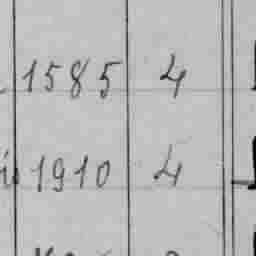 1585 4
1910 4